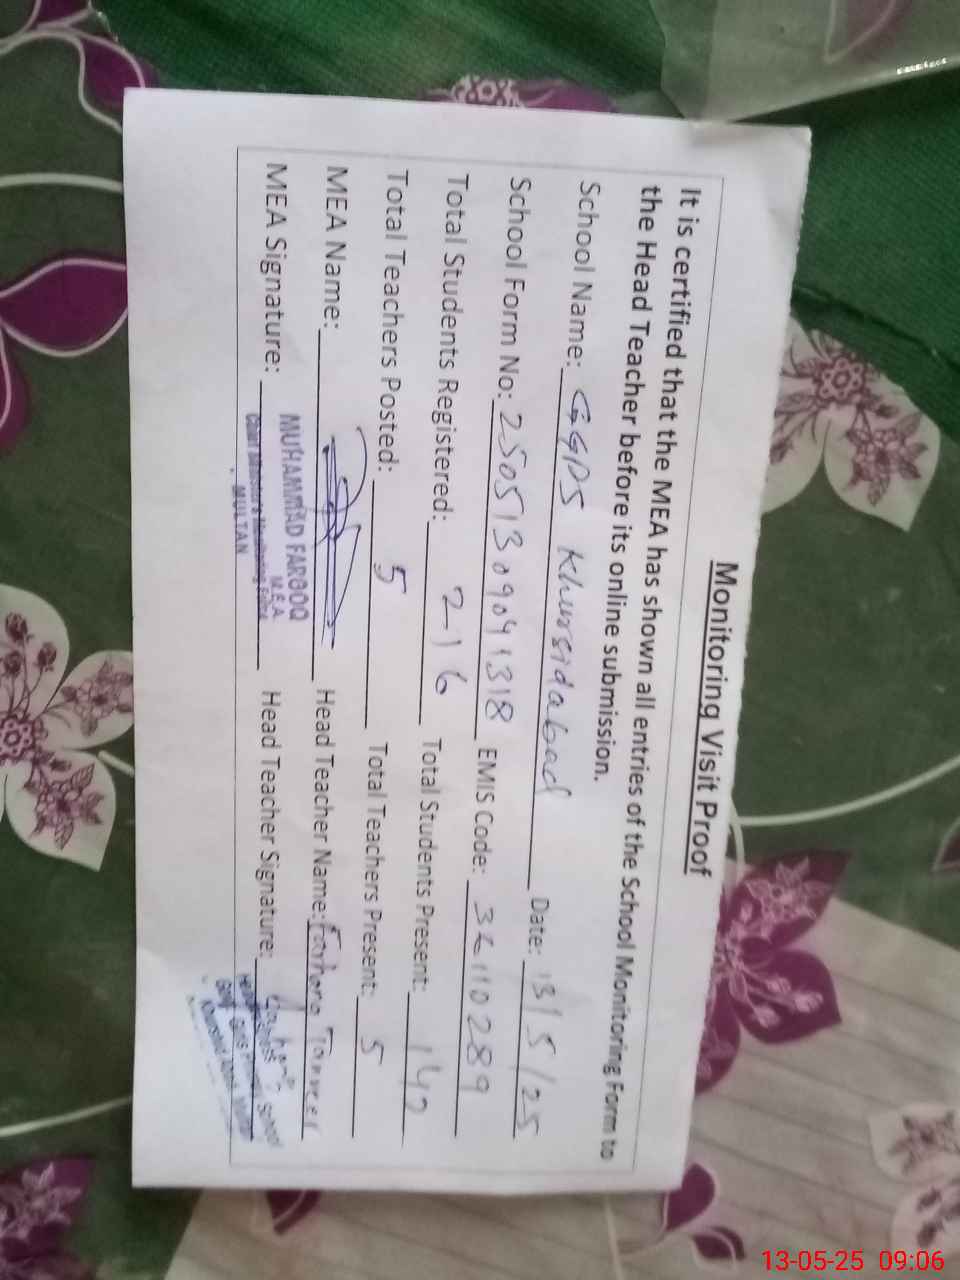 Monitoring Visit Proof
It is certified that the MEA has shown all entries of the School Monitoring Form to
the Head Teacher before its online submission.
School Name: GGPS Khursidabad Date: 13/5/25
School Form No: 2505130904318 EMIS Code:
Total Students Registered: 216 Total Students Present:
Total Teachers Posted: 5 Total Teachers Present: 5
MEA Name: Head Teacher Name: Tanveer
MEA Signature: Head Teacher Signature:
MUHAMMAD FAROOQ
M.E.A
Chief Minister's Monitoring Force
MULTAN
13-05-25 09:06